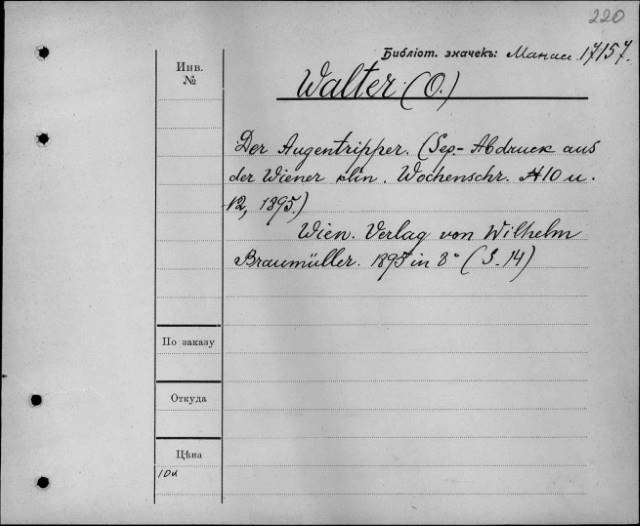 220
Библіот. значекъ: Манас. 17157.
Инв.
№
Walter (O.)
Der Augentripper. (Sep.-Abdruck aus
der Wiener klin. Wochenschr. № 10 u.
12, 1895.)
Wien. Verlag von Wilhelm
Braumüller. 1895 in 8° (S. 14)
По заказу
Откуда
Цѣна